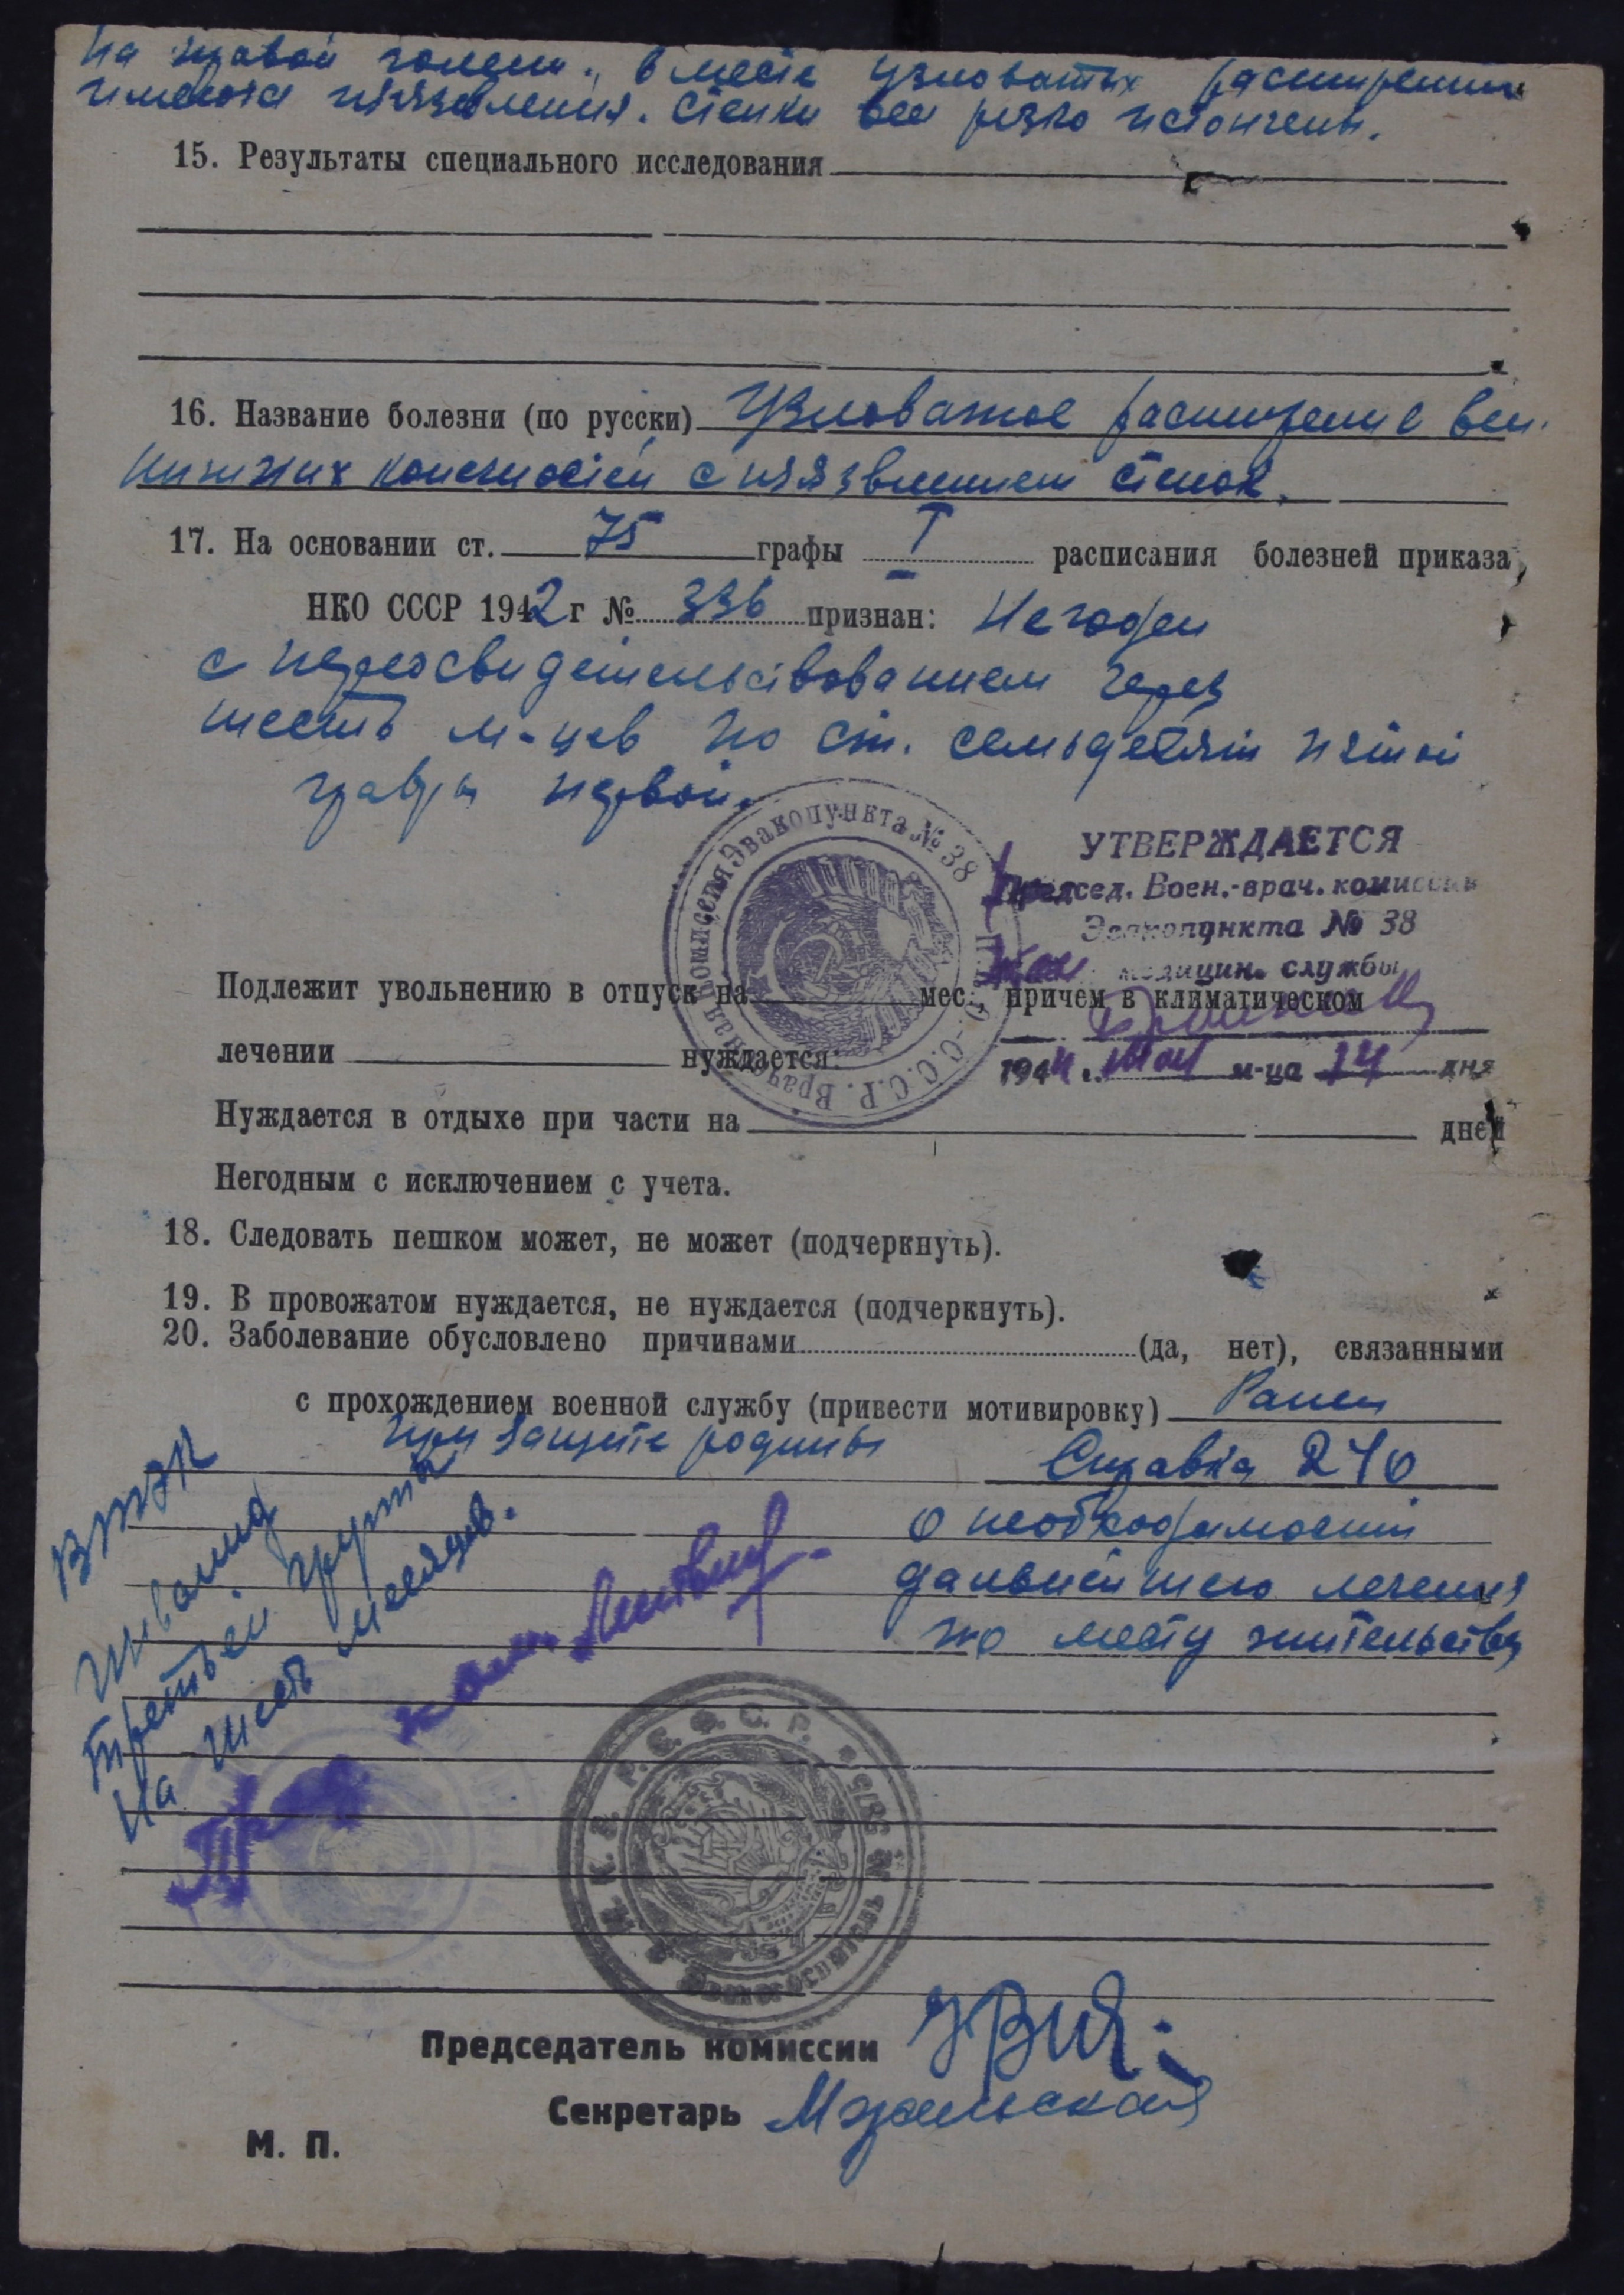 на правой голени. В месте узловатых расширений
имеются изъязвления. Стенки вен резко истончены.
15. Результаты специального исследования
16. Название болезни (по русски) Узловатое расширение вен
нижних конечностей с изъязвлением стенок.
17. На основании ст. 75 графы I расписания болезней приказа
НКО СССР 1942 г № 336 признан: Негоден
с переосвидетельствованием через
шесть м-цев по ст. семьдесят пятой
графы первой.
Эвакопункта № 38
УТВЕРЖДАЕТСЯ
Председ. Воен.-врач. комиссии
Эвакопункта № 38
медицин. службы
Подлежит увольнению в отпуск на мес., причем в климатическом
лечении нуждается.
1944 г. мая м-ца 14 дня
Нуждается в отдыхе при части на дней
Негодным с исключением с учета.
18. Следовать пешком может, не может (подчеркнуть).
19. В провожатом нуждается, не нуждается (подчеркнуть).
20. Заболевание обусловлено причинами (да, нет), связанными
с прохождением военной службу (привести мотивировку) Ранен
при защите родины
Справка 270
о необходимости
дальнейшего лечения
по месту жительства
ВТЭК
Инвалид
третьей группы
на шесть месяцев.
Р. С. Ф. С. Р.
Председатель комиссии
Секретарь
М. П.